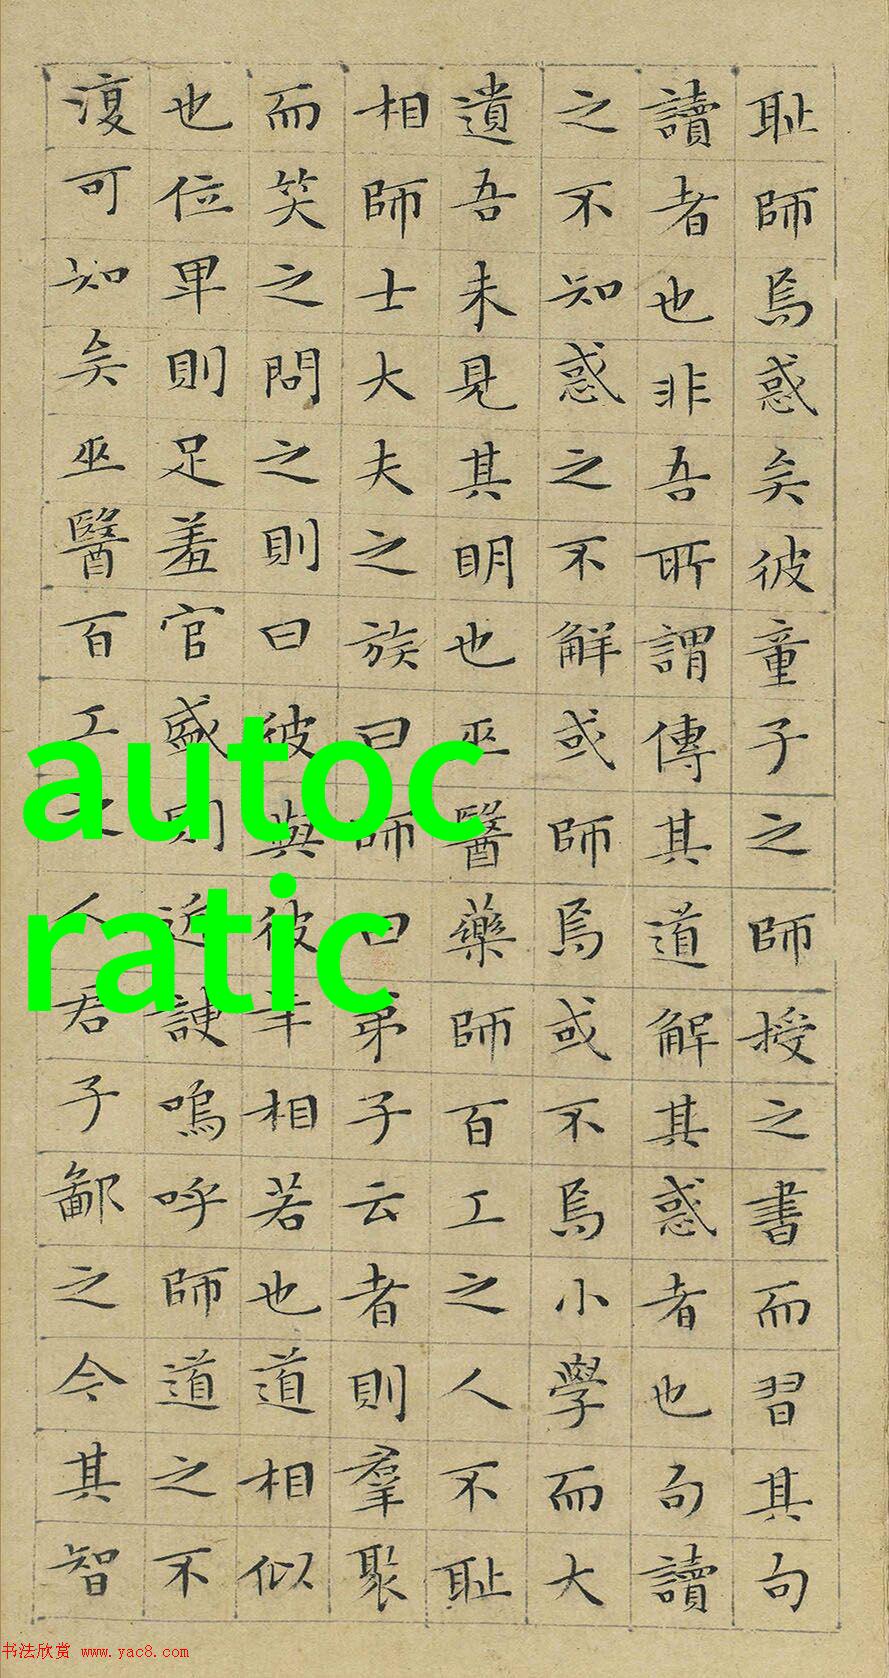 耻師焉惑矣彼童子之師授之書而習其句
讀者也非吾所謂傳其道解其惑者也句讀
之不知惑之不解或師焉或不焉小學而大
遺吾未見其明也巫醫藥師百工之人不耻
相師士大夫之族曰師曰弟子云者則羣聚
而笑之問之則曰彼與彼年相若也道相似
也位卑則足羞官盛則近諛嗚呼師道之不
復可知矣巫醫百工之人君子鄙之今其智
autoc
ratic
书法欣赏 www.yac8.com